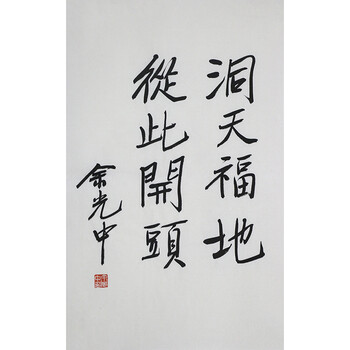 洞天福地
從此開頭
余光中